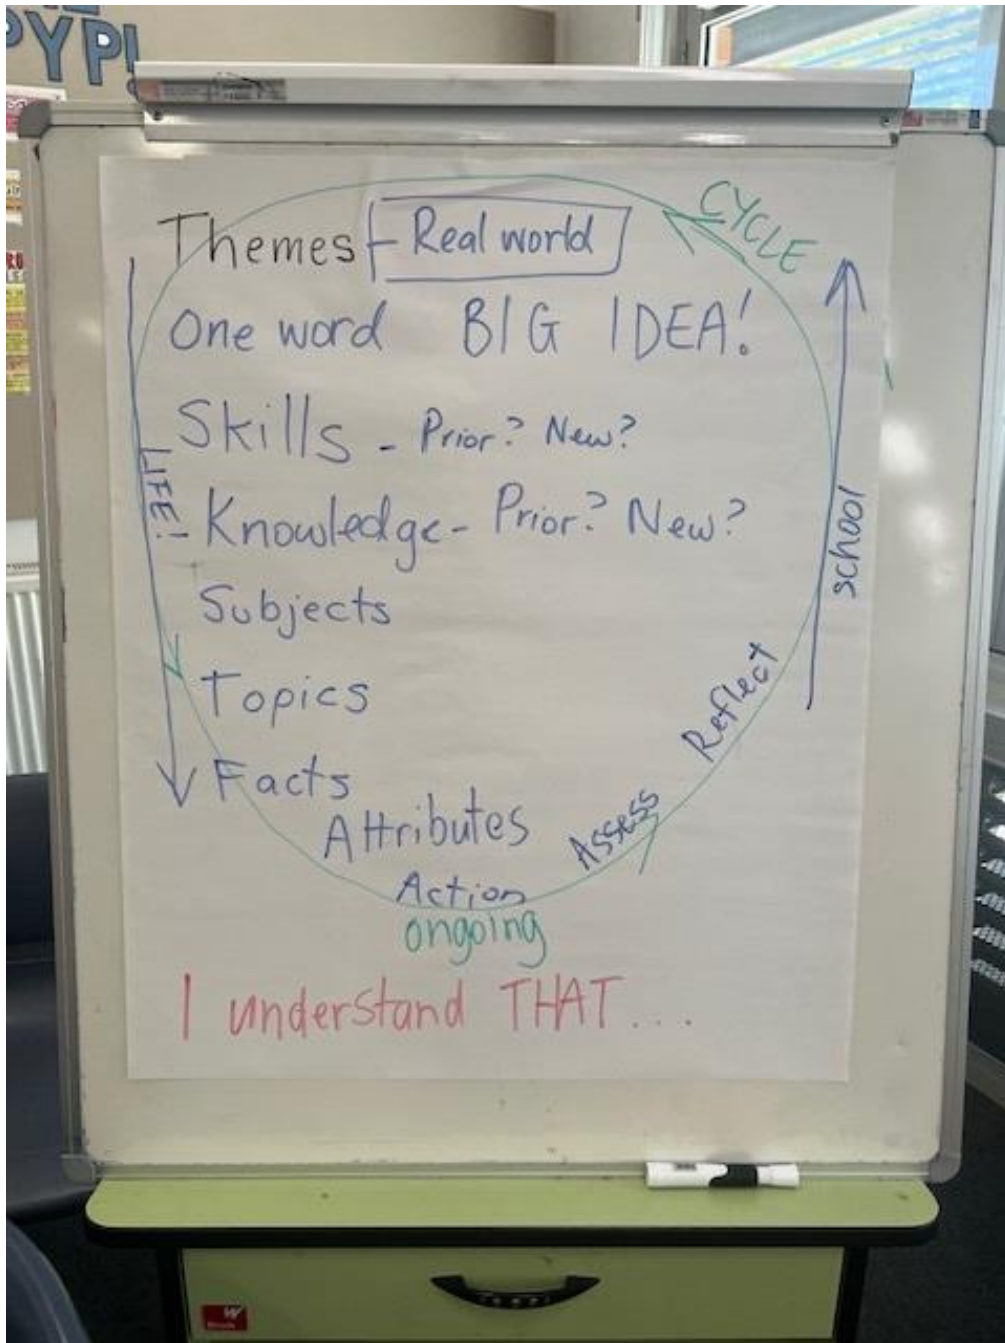 PYP!
CYCLE
Themes - Real world
One word BIG IDEA!
Skills - Prior? New?
LIFE!
Knowledge - Prior? New?
school
Subjects
Topics
Reflect
Facts
Attributes
Assess
Action
ongoing
I understand THAT...